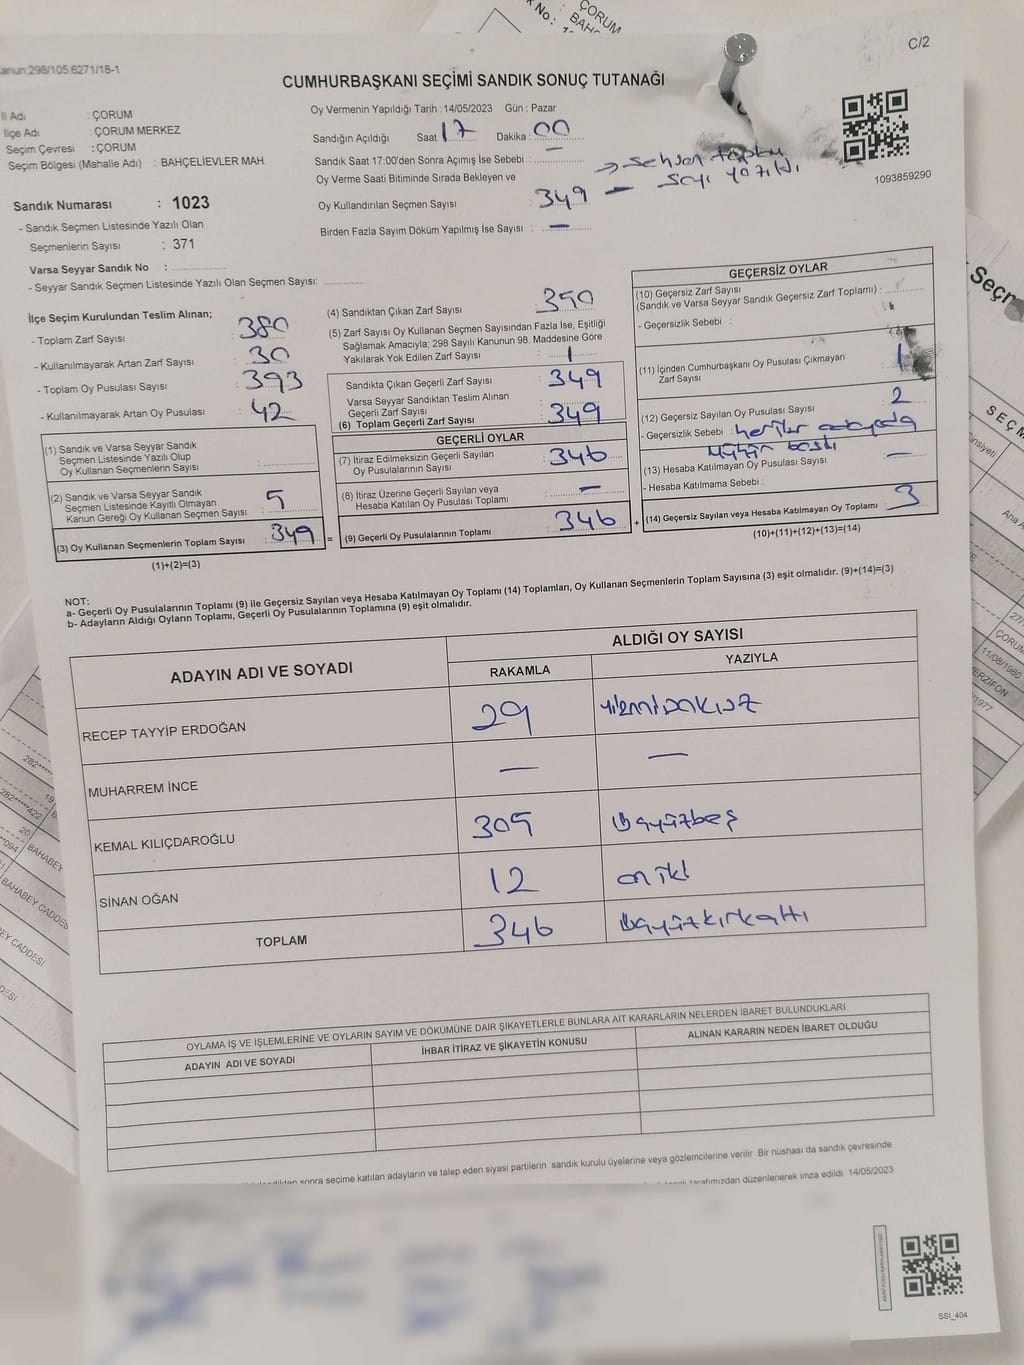 No :
ÇORUM
C/2
anun,298/105.6271/18-1
CUMHURBAŞKANI SEÇİMİ SANDIK SONUÇ TUTANAĞI
İl Adı : ÇORUM
İlçe Adı : ÇORUM MERKEZ
Seçim Çevresi : ÇORUM
Seçim Bölgesi (Mahalle Adı) : BAHÇELİEVLER MAH.
Oy Vermenin Yapıldığı Tarih : 14/05/2023 Gün : Pazar
Sandığın Açıldığı Saat 17 Dakika : 00
Sandık Saat 17:00'den Sonra Açımış İse Sebebi : –
Oy Verme Saati Bitiminde Sırada Bekleyen ve
Oy Kullandırılan Seçmen Sayısı 349 – → Sehven toplam
sayı yazıldı
Birden Fazla Sayım Döküm Yapılmış İse Sayısı : –
1093859290
Sandık Numarası : 1023
- Sandık Seçmen Listesinde Yazılı Olan
Seçmenlerin Sayısı : 371
Varsa Seyyar Sandık No :
- Seyyar Sandık Seçmen Listesinde Yazılı Olan Seçmen Sayısı:
İlçe Seçim Kurulundan Teslim Alınan;
- Toplam Zarf Sayısı : 380
- Kullanılmayarak Artan Zarf Sayısı : 30
- Toplam Oy Pusulası Sayısı : 393
- Kullanılmayarak Artan Oy Pusulası : 42
(1) Sandık ve Varsa Seyyar Sandık
Seçmen Listesinde Yazılı Olup
Oy Kullanan Seçmenlerin Sayısı :
(2) Sandık ve Varsa Seyyar Sandık
Seçmen Listesinde Kayıtlı Olmayan
Kanun Gereği Oy Kullanan Seçmen Sayısı : 5
(3) Oy Kullanan Seçmenlerin Toplam Sayısı : 349 =
(1)+(2)=(3)
(4) Sandıktan Çıkan Zarf Sayısı : 350
(5) Zarf Sayısı Oy Kullanan Seçmen Sayısından Fazla İse, Eşitliği
Sağlamak Amacıyla; 298 Sayılı Kanunun 98. Maddesine Göre
Yakılarak Yok Edilen Zarf Sayısı : 1
Sandıkta Çıkan Geçerli Zarf Sayısı : 349
Varsa Seyyar Sandıktan Teslim Alınan
Geçerli Zarf Sayısı :
(6) Toplam Geçerli Zarf Sayısı : 349
GEÇERLİ OYLAR
(7) İtiraz Edilmeksizin Geçerli Sayılan
Oy Pusulalarının Sayısı : 346
(8) İtiraz Üzerine Geçerli Sayılan veya
Hesaba Katılan Oy Pusulası Toplamı : –
(9) Geçerli Oy Pusulalarının Toplamı : 346 +
GEÇERSİZ OYLAR
(10) Geçersiz Zarf Sayısı
(Sandık ve Varsa Seyyar Sandık Geçersiz Zarf Toplamı) :
- Geçersizlik Sebebi :
(11) İçinden Cumhurbaşkanı Oy Pusulası Çıkmayan
Zarf Sayısı : 1
(12) Geçersiz Sayılan Oy Pusulası Sayısı : 2
- Geçersizlik Sebebi :
(13) Hesaba Katılmayan Oy Pusulası Sayısı : –
- Hesaba Katılmama Sebebi :
(14) Geçersiz Sayılan veya Hesaba Katılmayan Oy Toplamı : 3
(10)+(11)+(12)+(13)=(14)
NOT:
a- Geçerli Oy Pusulalarının Toplamı (9) ile Geçersiz Sayılan veya Hesaba Katılmayan Oy Toplamı (14) Toplamları, Oy Kullanan Seçmenlerin Toplam Sayısına (3) eşit olmalıdır. (9)+(14)=(3)
b- Adayların Aldığı Oyların Toplamı, Geçerli Oy Pusulalarının Toplamına (9) eşit olmalıdır.
ADAYIN ADI VE SOYADI ALDIĞI OY SAYISI
RAKAMLA YAZIYLA
RECEP TAYYİP ERDOĞAN 29 yirmidokuz
MUHARREM İNCE – –
KEMAL KILIÇDAROĞLU 305 üçyüzbeş
SİNAN OĞAN 12 oniki
TOPLAM 346 üçyüzkırkaltı
OYLAMA İŞ VE İŞLEMLERİNE VE OYLARIN SAYIM VE DÖKÜMÜNE DAİR ŞİKAYETLERLE BUNLARA AİT KARARLARIN NELERDEN İBARET BULUNDUKLARI
ADAYIN ADI VE SOYADI İHBAR İTİRAZ VE ŞİKAYETİN KONUSU ALINAN KARARIN NEDEN İBARET OLDUĞU
sonra seçime katılan adayların ve talep eden siyasi partilerin sandık kurulu üyelerine veya gözlemcilerine verilir. Bir nüshası da sandık çevresinde
tarafımızdan düzenlenerek imza edildi. 14/05/2023
SSİ_404
Seçm
SEÇM
ÇORUM
11/08/1980
MERZİFON
/1977
BAHABEY
BAHABEY CADDES
EY CADDESİ
DESİ